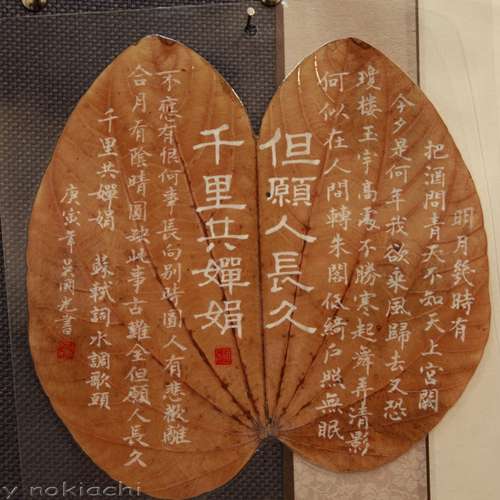 明月幾時有
把酒問青天不知天上宮闕
今夕是何年我欲乘風歸去又恐
瓊樓玉宇高處不勝寒起舞弄清影
何似在人間轉朱閣低綺戶照無眠
但願人長久
千里共嬋娟
不應有恨何事長向別時圓人有悲歡離
合月有陰晴圓缺此事古難全但願人長久
千里共嬋娟 蘇軾詞水調歌頭
庚寅年吳國光書
y nokiachi